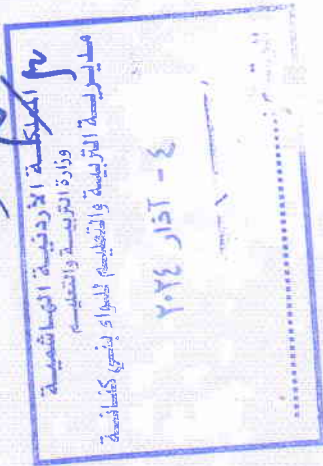 المملكة الأردنية الهاشمية
وزارة التربية والتعليم
مديرية التربية والتعليم للواء بني كنانة
٤ - آذار ٢٠٢٤